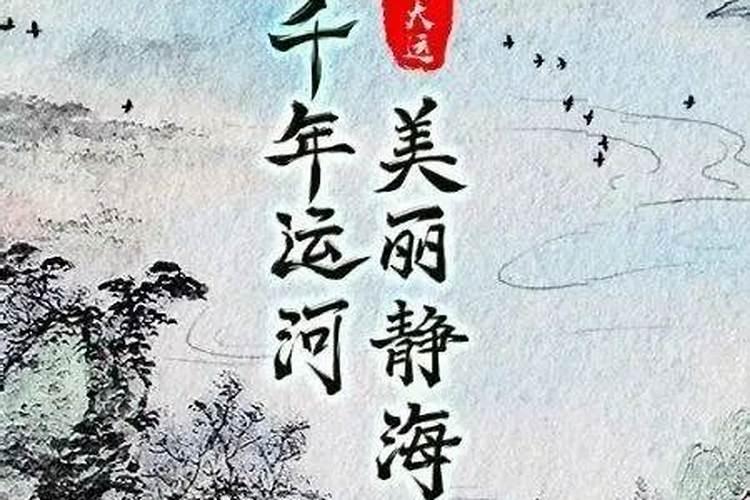 大运
美丽静海
千年运河